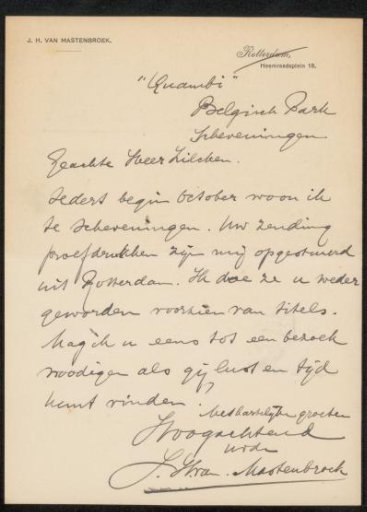 J. H. VAN MASTENBROEK.
Rotterdam,
Heemraadsplein 18.
"Quambi"
Belgisch Park
Scheveningen
Geachte Heer Zilcken.
Sedert begin October woon ik
te Scheveningen. Uw zending
proefdrukken zijn mij opgestuurd
uit Rotterdam. Ik doe ze u weder
geworden voorzien van titels.
Mag ik u eens tot een bezoek
noodigen als gij lust en tijd
kunt vinden.
Met hartelijke groeten
Hoogachtend
J. H. van Mastenbroek